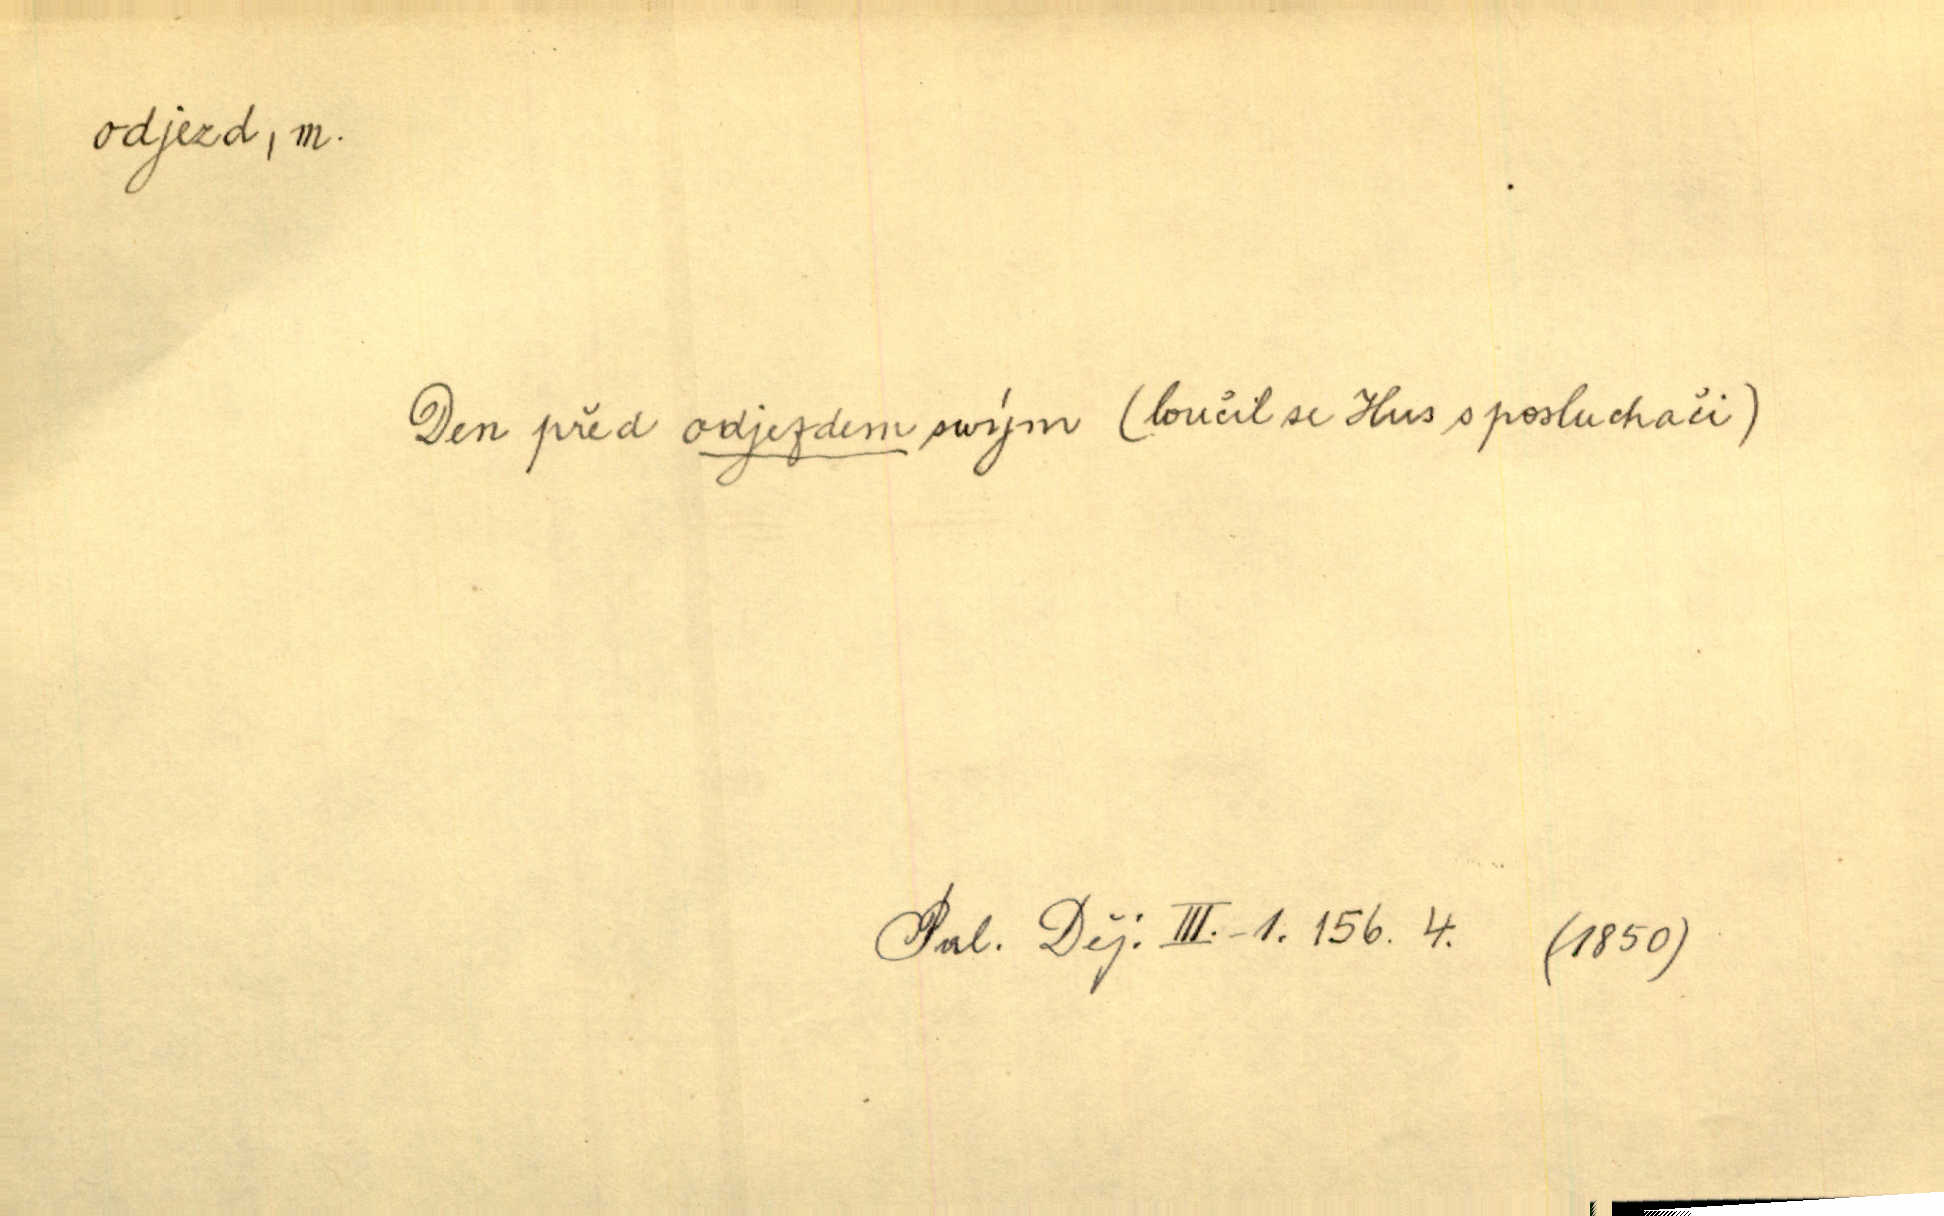 odjezd, m.
Den před odjezdem swým (loučil se Hus s posluchači)
Pal. Děj. III.-1. 156. 4. (1850)